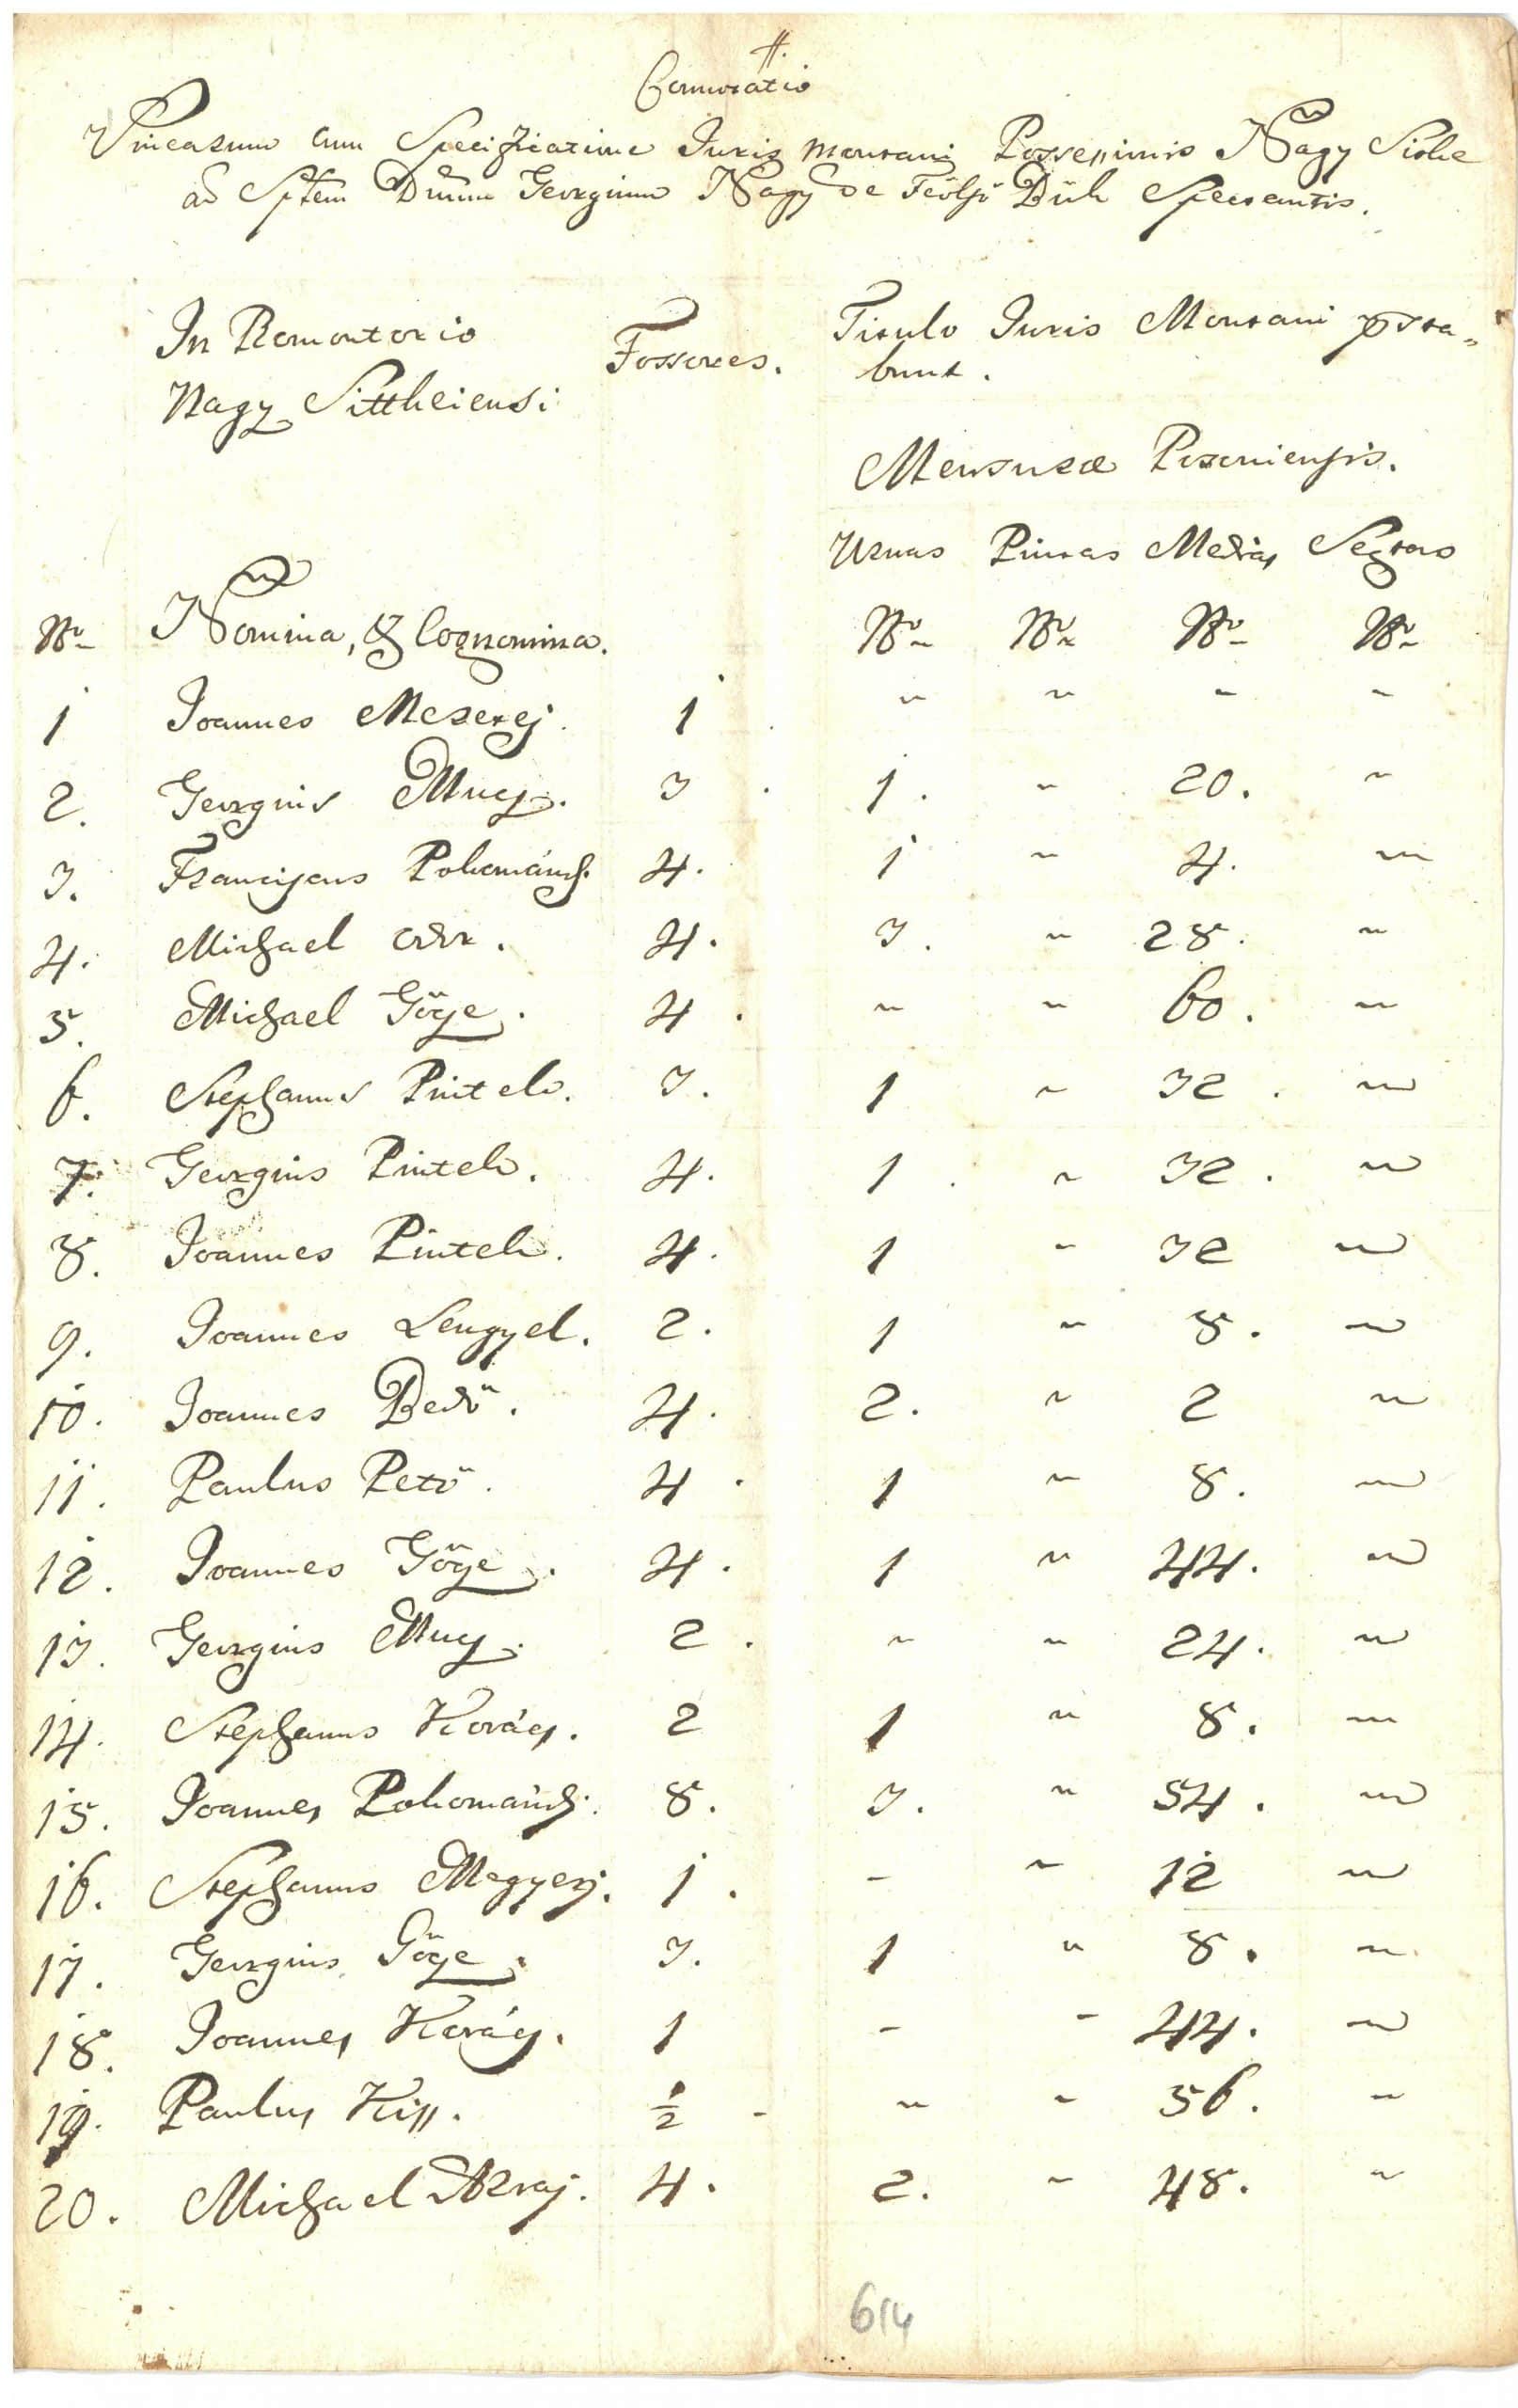 #.
Conumeratio
Vinearum cum Specificatione Juris Montani Possessionis Nagy Sithe
ad Sptem Dnum Georgium Nagy de Feölsö Bük Spectantis.
In Promontorio Fossores. Titulo Juris Montani praesta„
Nagy Sittheiensi bunt.
Mensurae Posoniensis.
Urnas Pintas Medias Seytas
Nro Nomina, & Cognomina. Nro Nro Nro Nro
1 Joannes Meszerej. 1 " " - -
2. Georgius Mucj. 3 1. " 20. "
3. Franciscus Pohománcz. 4. 1 " 4. "
4. Michael 4. 3. " 28. "
5. Michael Göcze. 4. " " 60. "
6. Stephanus Pintek. 3. 1 " 32. "
7. Georgius Pintek. 4. 1. " 32. "
8. Joannes Pintek. 4. 1 " 32 "
9. Joannes Lengyel. 2. 1 " 8. "
10. Joannes Bedö. 4. 2. " 2 "
11. Paulus Petö. 4. 1 " 8. "
12. Joannes Göcze. 4. 1 " 44. "
13. Georgius Mucj. 2. " " 24. "
14. Stephanus Kovács. 2 1 " 8. "
15. Joannes Pohománcz. 8. 3. " 54. "
16. Stephanus Megyerj. 1. - " 12 "
17. Georgius Göcze. 3. 1 " 8. "
18. Joannes Kovács. 1 - - 44. "
19. Paulus Kiss. 1/2 - " - 56. "
20. Michael 4. 2. " 48. "
614